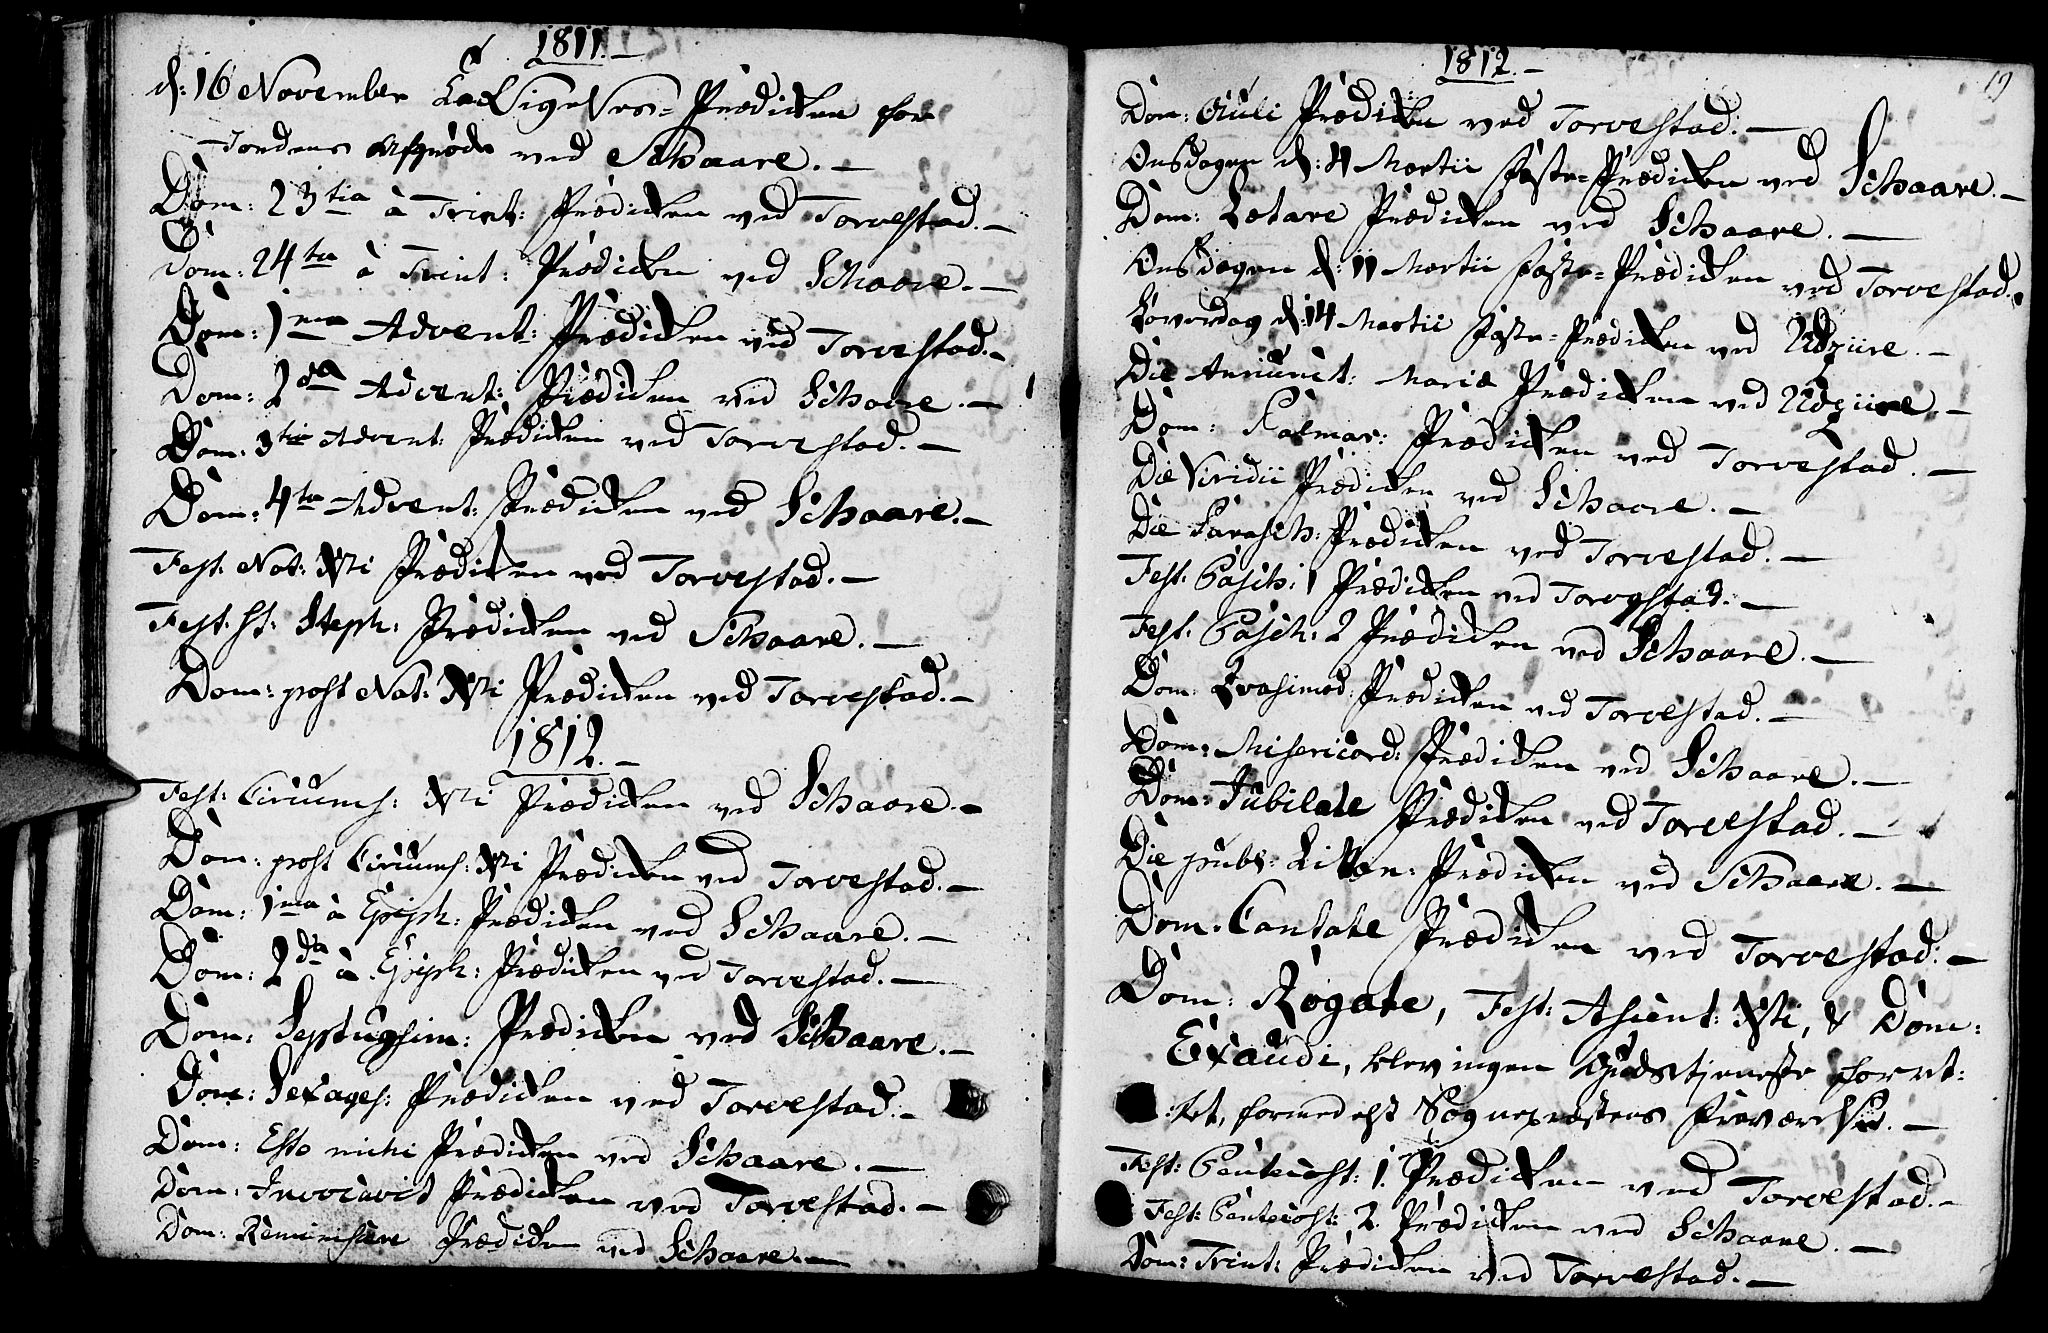 1811.-
d: 16 November Taksigelses=Prædicken for
Jordens Afgrøde ved Schaare.-
Dom: 23tia à Trint: Prædicken ved Torvestad.-
Dom: 24ta à Trint: Prædicken ved Schaare.-
Dom: 1ma Advent: Prædicken ved Torvestad.-
Dom: 2da Advent: Prædicken ved Schaare.-
Dom: 3tia Advent: Prædicken ved Torvestad.-
Dom: 4ta Advent: Prædicken ved Schaare.-
Fest: Nat: Xsti Prædicken ved Torvestad.-
Fest: St: Steph: Prædicken ved Schaare.-
Dom: post Nat: Xsti Prædicken ved Torvestad.-
1812.-
Fest: Circumcs: Xsti Prædicken ved Schaare.-
Dom: post Circumcs: Xsti Prædicken ved Torvestad.-
Dom: 1ma à Epiph: Prædicken ved Schaare.-
Dom: 2da à Epiph: Prædicken ved Torvestad.-
Dom: Septugsim: Prædicken ved Schaare.-
Dom: Sexages: Prædicken ved Torvestad.-
Dom: Esto michi Prædicken ved Schaare.-
Dom: Invocavit Prædicken ved Torvestad.-
Dom: Reminiscere Prædicken ved Schaare.-
1812.-
19
Dom: Oculi Prædicken ved Torvestad.-
Onsdagen d: 4 Martii Faste=Prædicken ved Schaare.-
Dom: Lætare Prædicken ved Schaare.-
Onsdagen d: 11 Martii Faste=Prædicken ved Torvestad.-
Løverdag d: 14 Martii Faste=Prædicken ved Udziire.-
Die Annunct: Mariæ Prædicken ved Udziire.-
Dom: Palmar: Prædicken ved Torvestad.-
Die Viridii Prædicken ved Schaare.-
Die Parasch: Prædicken ved Torvestad.-
Fest: Pasch: 1 Prædicken ved Torvestad.-
Fest: Pasch: 2 Prædicken ved Schaare.-
Dom: Qvasimod: Prædicken ved Torvestad.-
Dom: Misericord: Prædicken ved Schaare.-
Dom: Jubilate Prædicken ved Torvestad.-
Die publ: Prædicken ved Schaare.-
Dom: Cantate Prædicken ved Torvestad.-
Dom: Rogate, Fest: Ascent: Xsti, & Dom:
Exaudi, blev ingen Gudstjeneste forret:
:tet, formedelst Sognepræstens Fraværelse.-
Fest: Pentecost: 1. Prædicken ved Torvestad.-
Fest: Pentecost: 2. Prædicken ved Schaare.-
Dom: Trint: Prædicken ved Torvestad.-